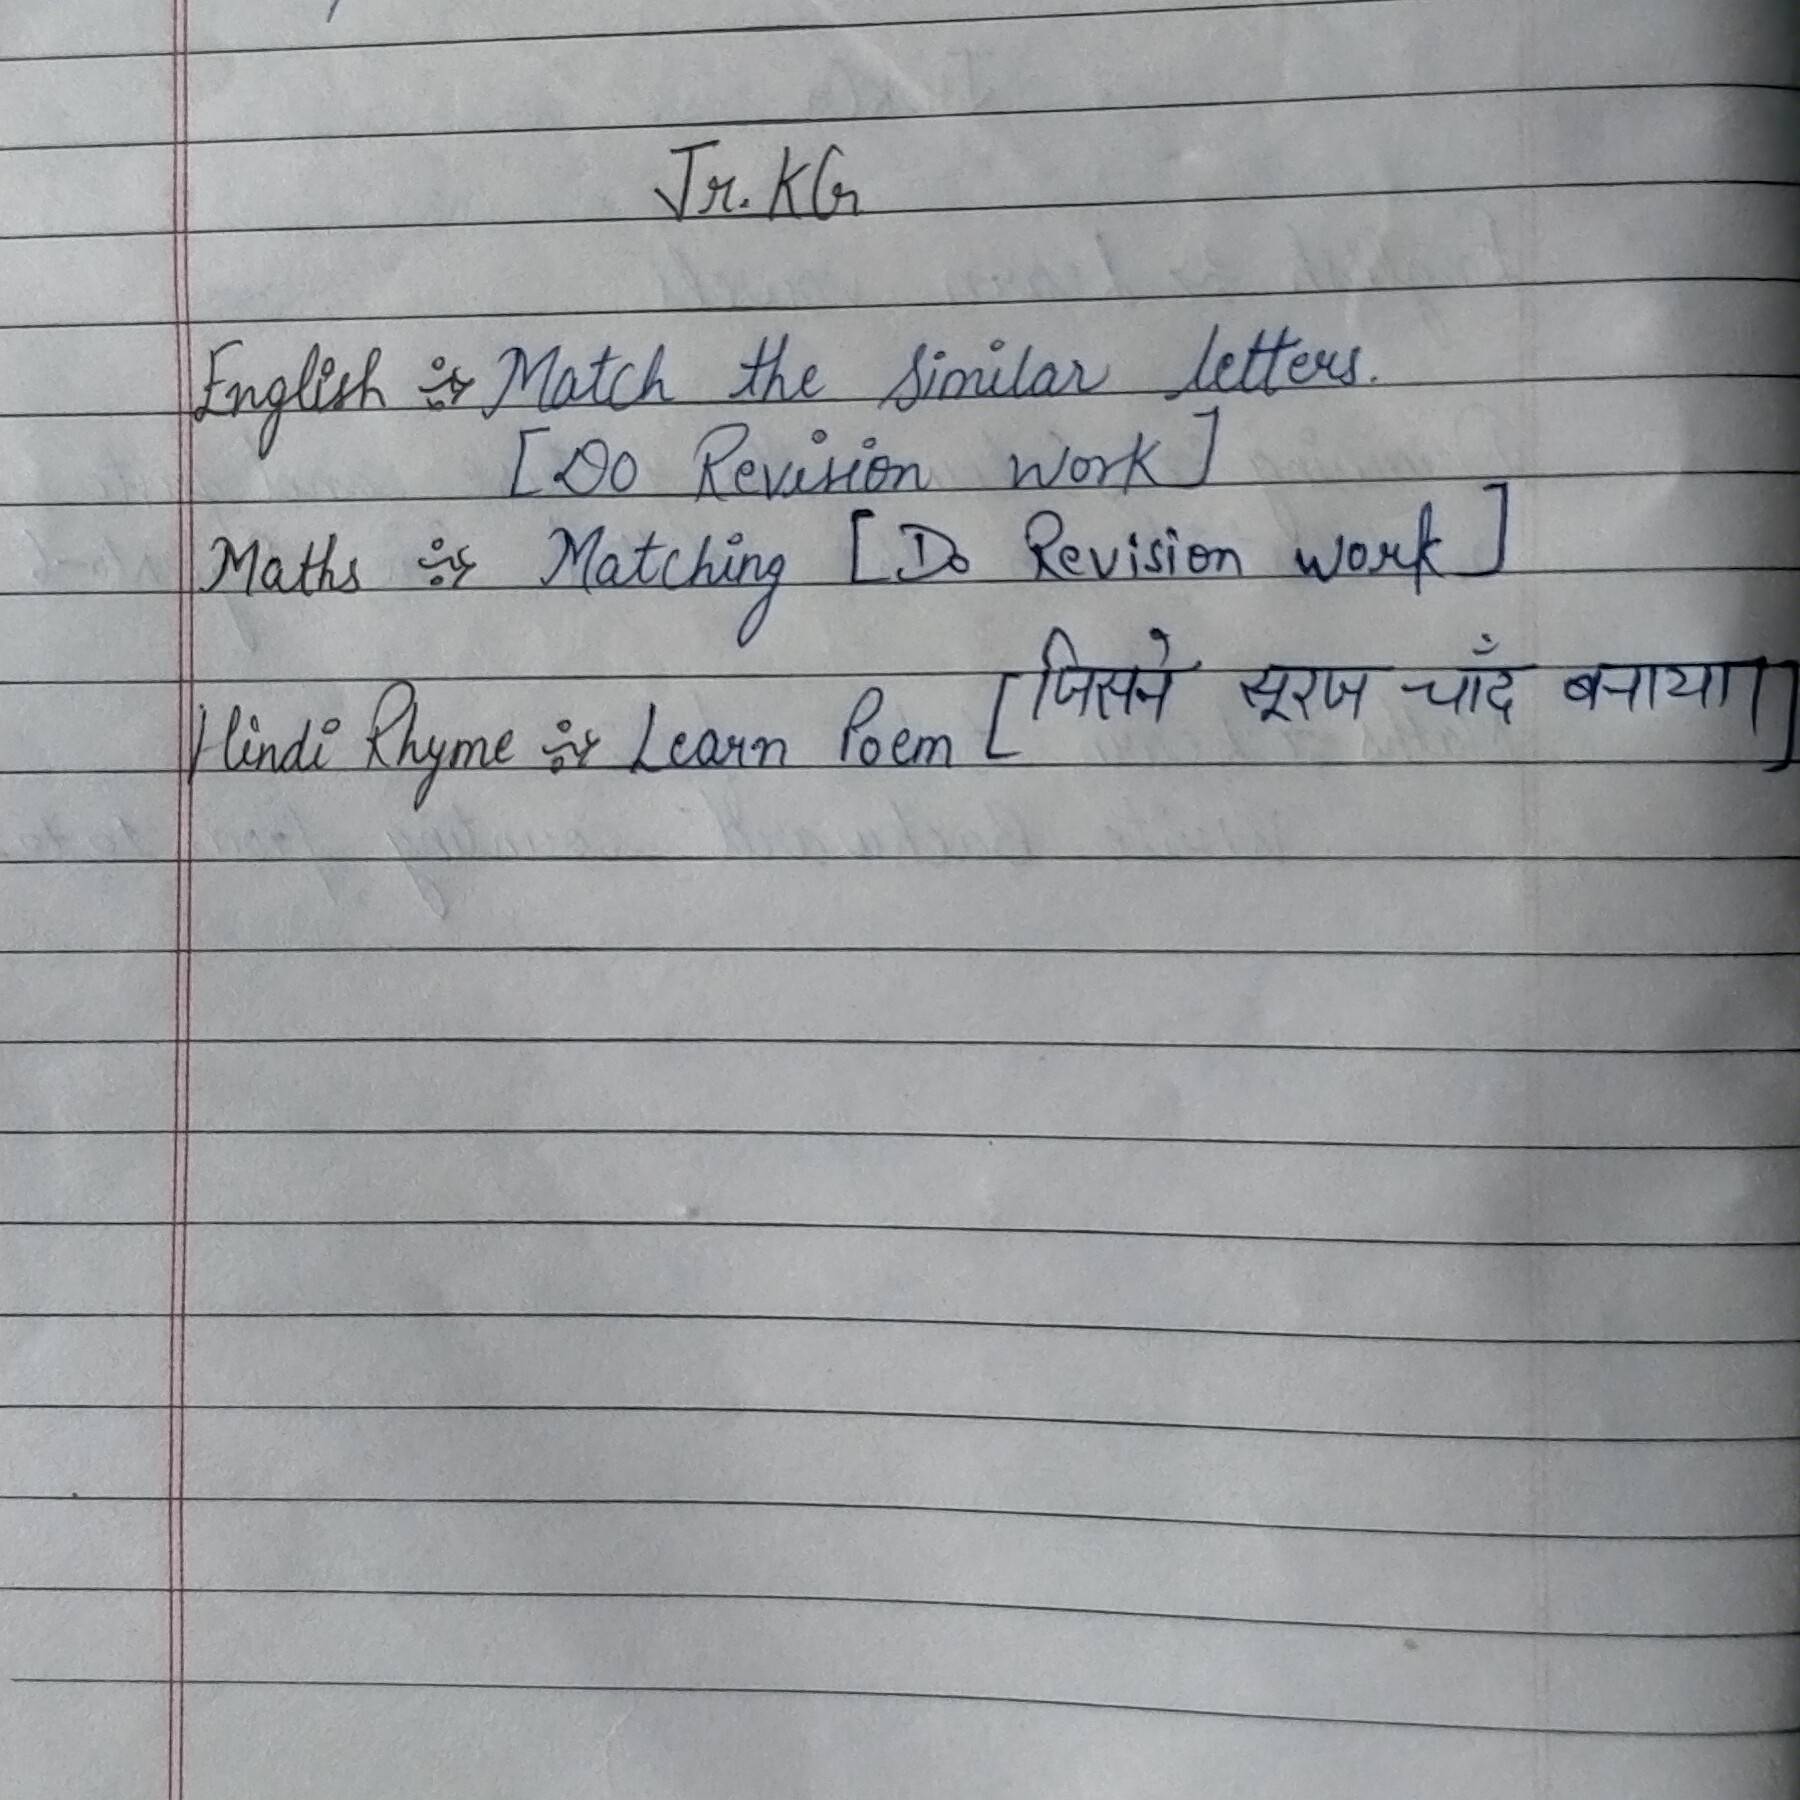 Jr. KG
English :- Match the similar letters.
[Do Revision work]
Maths :- Matching [Do Revision work]
Hindi Rhyme :- Learn Poem [जिसने सूरज चाँद बनाया]